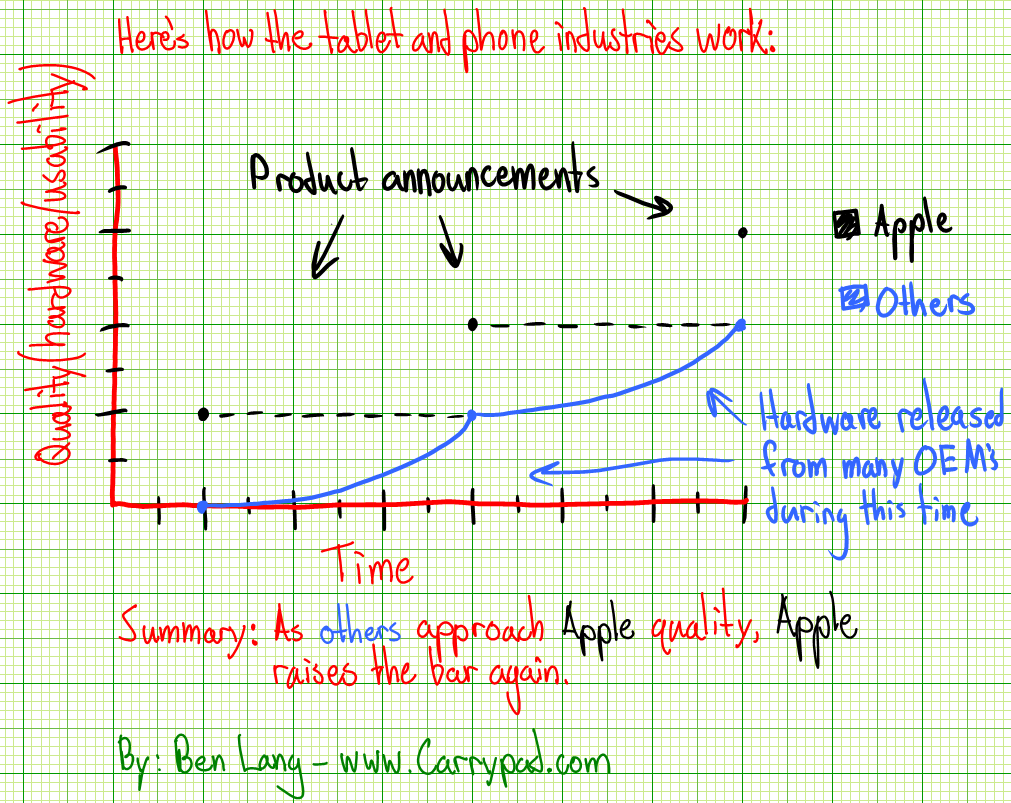 Here's how the tablet and phone industries work:
Quality (hardware/usability)
Product announcements
Apple
Others
Hardware released
from many OEM's
during this time
Time
Summary: As others approach Apple quality, Apple
raises the bar again.
By: Ben Lang - www.Carrypad.com